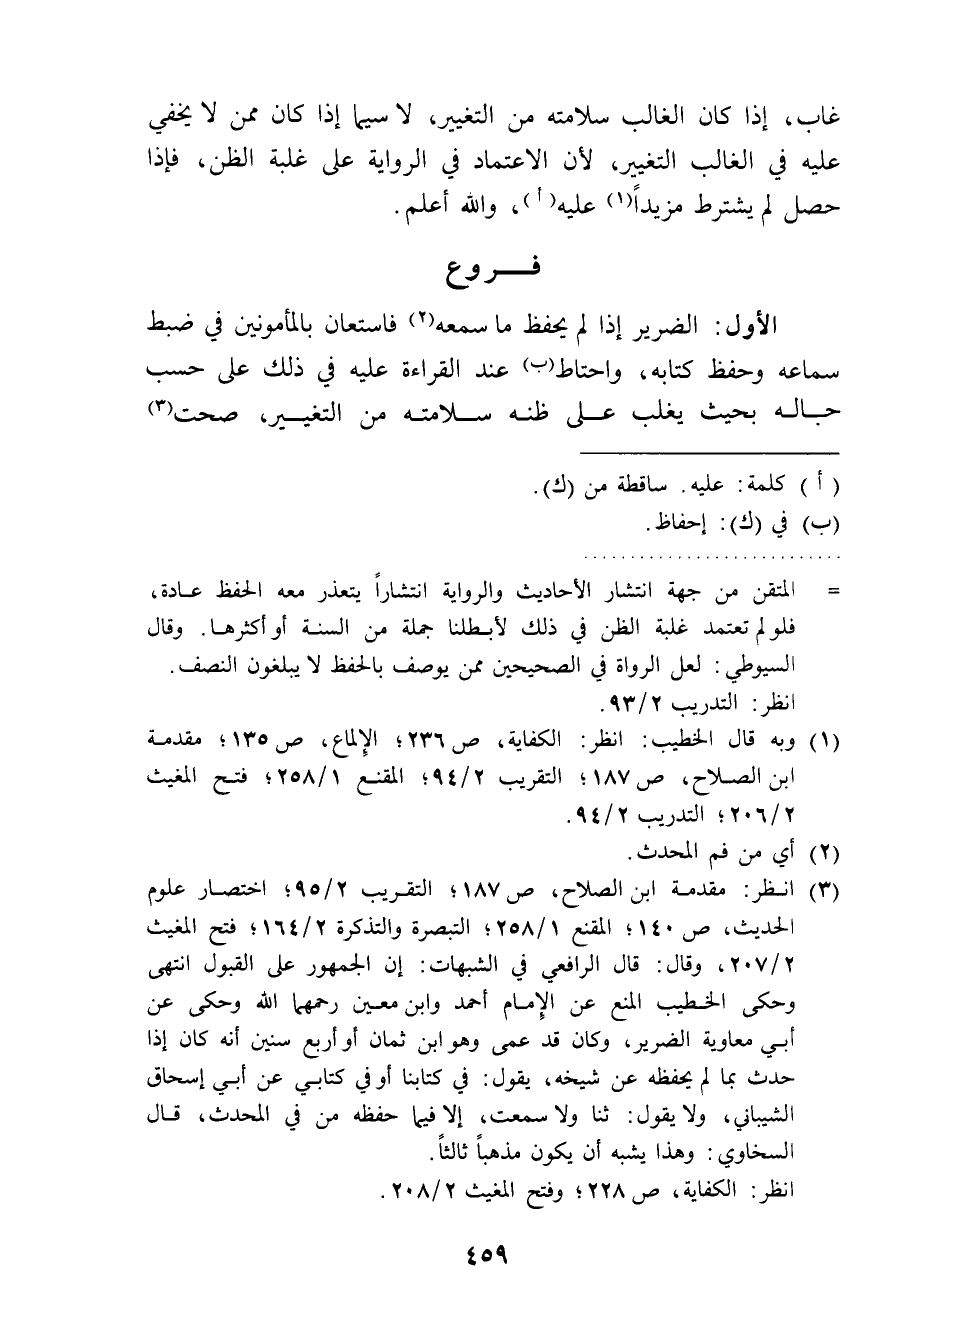 غاب، إذا كان الغالب سلامته من التغيير، لا سيما إذا كان ممن لا يخفي
عليه في الغالب التغيير، لأن الاعتماد في الرواية على غلبة الظن، فإذا
حصل لم يشترط مزيداً(١) عليه(أ)، والله أعلم.
فـــروع
الأول: الضرير إذا لم يحفظ ما سمعه(٢) فاستعان بالمأمونين في ضبط
سماعه وحفظ كتابه، واحتاط(ب) عند القراءة عليه في ذلك على حسب
حـالـه بحيث يغلب عـلى ظنـه سـلامتـه من التغيـير، صحت(٣)
(أ) كلمة: عليه. ساقطة من (ك).
(ب) في (ك): إحفاظ.
= المتقن من جهة انتشار الأحاديث والرواية انتشاراً يتعذر معه الحفظ عـادة،
فلو لم تعتمد غلبة الظن في ذلك لأبـطلنا جملة من السنـة أو أكثرهـا. وقال
السيوطي: لعل الرواة في الصحيحين ممن يوصف بالحفظ لا يبلغون النصف.
انظر: التدريب ٩٣/٢.
(١) وبه قال الخطيب: انظر: الكفاية، ص ٢٣٦؛ الإلماع، ص ١٣٥؛ مقدمـة
ابن الصـلاح، ص ١٨٧؛ التقريب ٩٤/٢؛ المقنـع ٢٥٨/١؛ فتـح المغيث
٢٠٦/٢؛ التدريب ٩٤/٢.
(٢) أي من فم المحدث.
(٣) انـظر: مقدمـة ابن الصلاح، ص ١٨٧؛ التقـريب ٩٥/٢؛ اختصـار علوم
الحديث، ص ١٤٠؛ المقنع ٢٥٨/١؛ التبصرة والتذكرة ١٦٤/٢؛ فتح المغيث
٢٠٧/٢، وقال: قال الرافعي في الشبهات: إن الجمهور على القبول انتهى
وحكى الخـطيب المنع عن الإمـام أحمد وابن معـين رحمهما الله وحكى عن
أبـي معاوية الضرير، وكان قد عمى وهو ابن ثمان أو أربع سنين أنه كان إذا
حدث بما لم يحفظه عن شيخه، يقول: في كتابنا أو في كتابـي عن أبـي إسحاق
الشيباني، ولا يقول: ثنا ولا سمعت، إلا فيما حفظه من في المحدث، قـال
السخاوي: وهذا يشبه أن يكون مذهباً ثالثاً.
انظر: الكفاية، ص ٢٢٨؛ وفتح المغيث ٢٠٨/٢.
٤٥٩